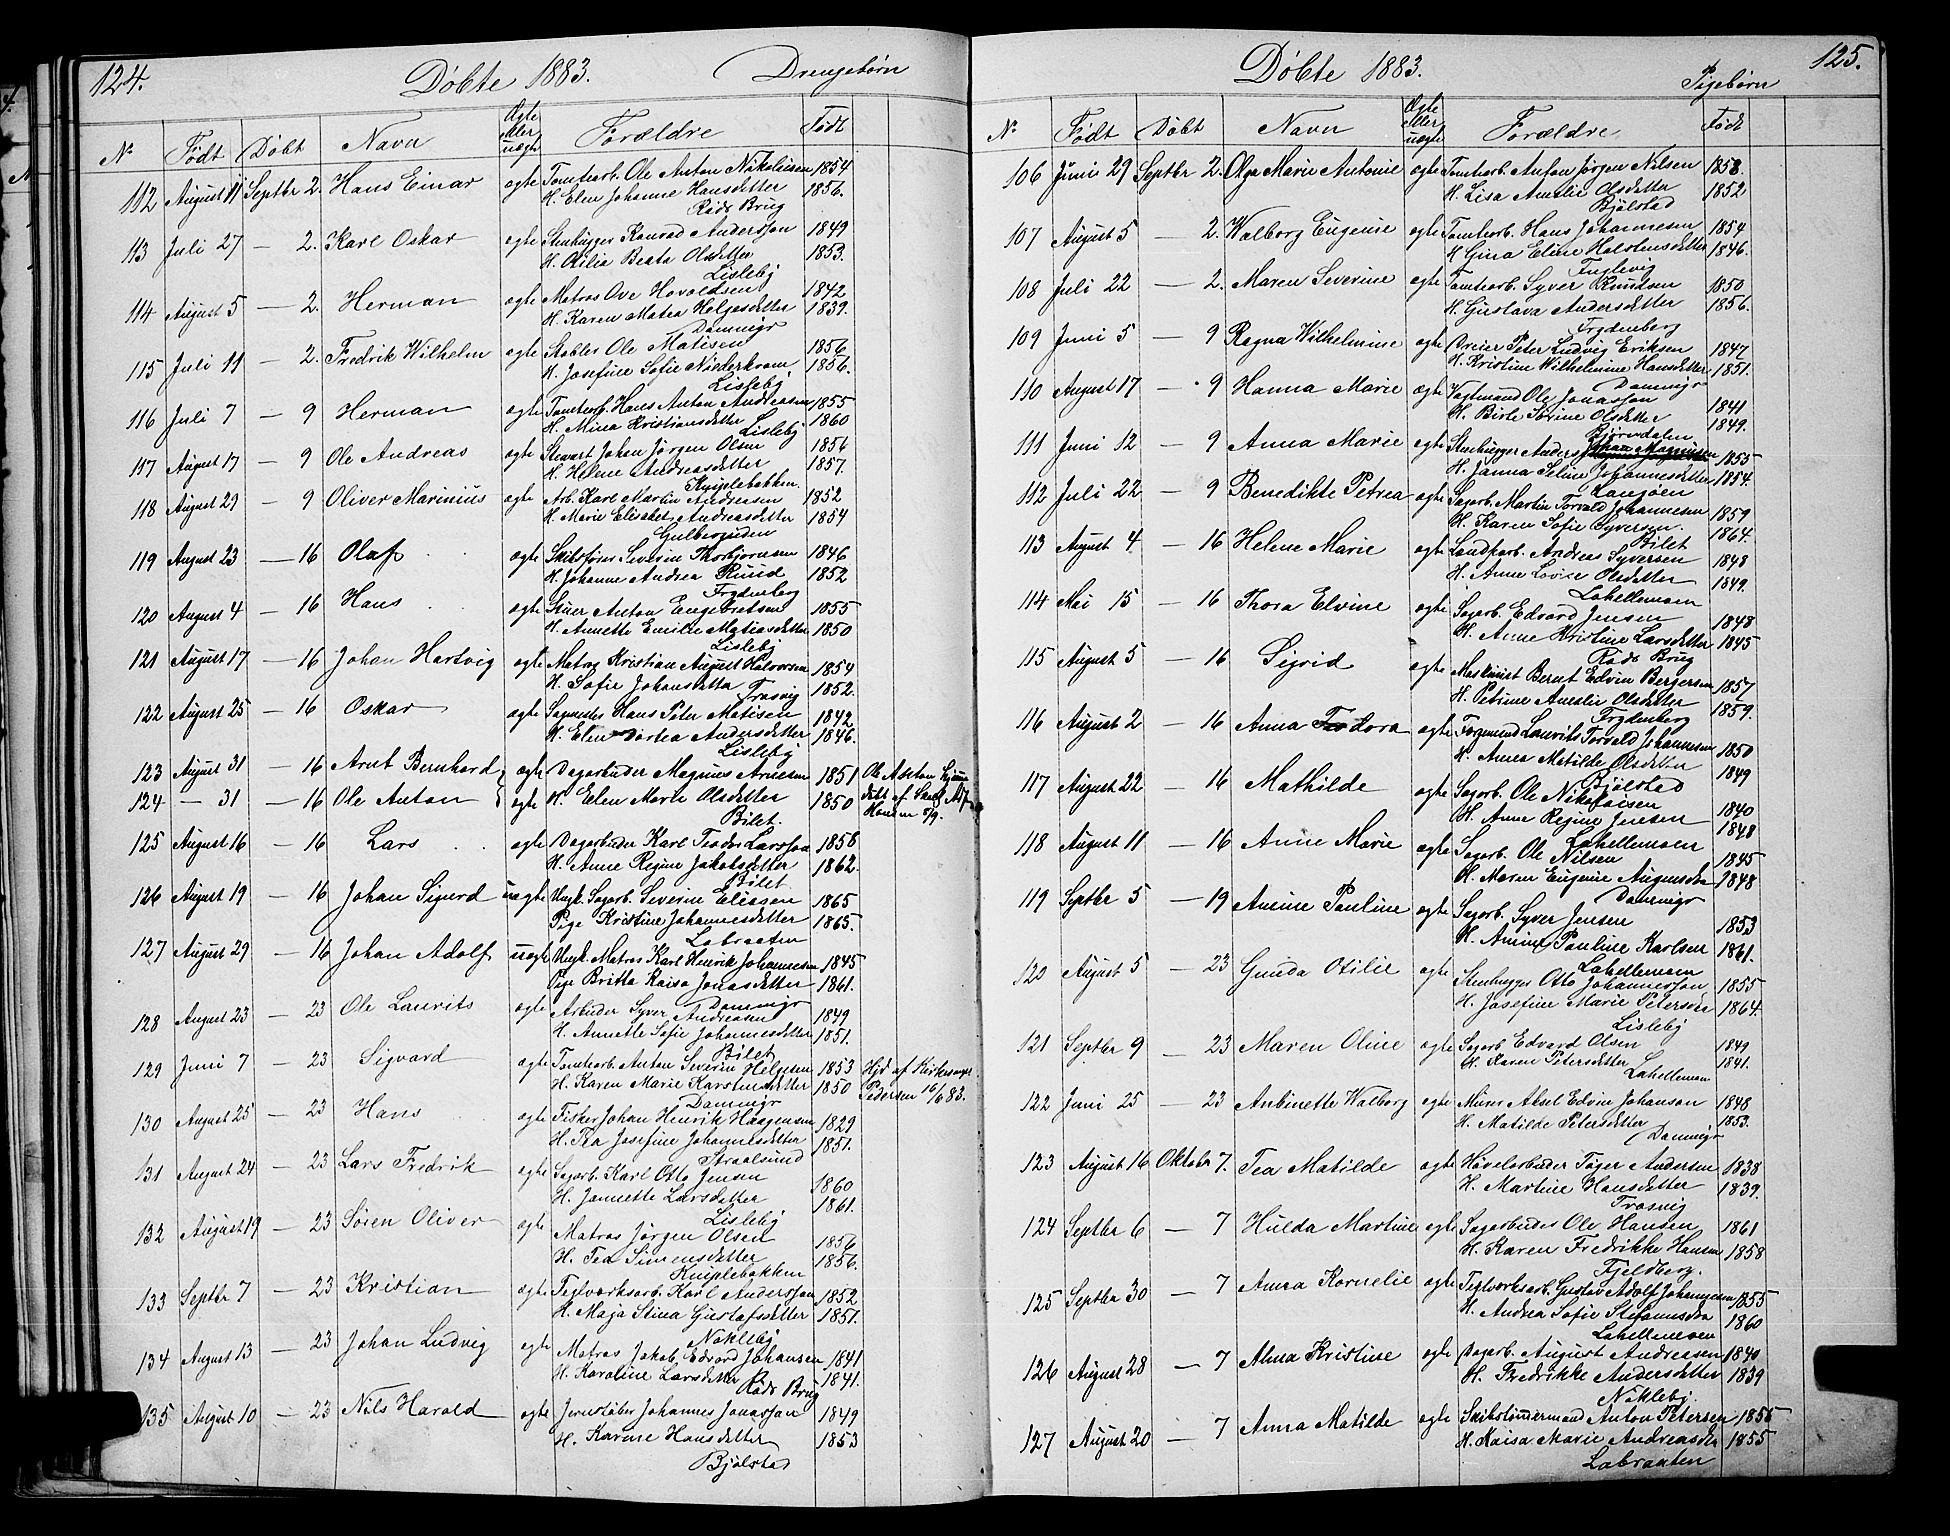 124.
Døbte 1883.
Drengebørn
Ægte eller uægte
Nº Født Døbt Navn Forældre Født
112 August 11 Septbr 2. Hans Einar ægte Tomtearb. Ole Anton Nikolaisen 1854
H. Elen Johanne Hansdatter 1856.
Røds Brug
113 Juli 27 — 2. Karl Oskar ægte Stenhugger Konrad Andersson 1849
H. Beata Olsdatter 1853.
Lisleby
114 August 5 — 2. Herman ægte Matros Ove Hovoldsen 1842
H. Karen Matea Helgesdatter 1839.
Dammyr
115 Juli 11 — 2. Fredrik Wilhelm ægte Stabler Ole Matisen 1856
H. Josefine Sofie 1856.
Lisleby
116 Juli 7 — 9 Herman ægte Tomtearb. Hans Anton Andreasen 1855
H. Mina Kristiansdatter 1860
Lisleby
117 August 17 — 9 Ole Andreas ægte Stewart Johan Jørgen Olsen 1856
H. Helene Andreasdatter 1857.
Kniplebakken
118 August 29 — 9 Oliver Marinius ægte Arb. Karl Martin Andreasen 1852
H. Marie Elisabet Andreasdatter 1854
119 August 23 — 16 Olaf ægte Skibsfører Severin Thorbjørnsen 1846
H. Johanne Andrea Ruud 1852
Frydenberg
120 August 4 — 16 Hans ægte Stuer Anton Engebretsen 1855
H. Annette Emilie Matiasdatter 1850
Lisleby
121 August 17 — 16 Johan Hartvig ægte Matros Kristian August Halvorsen 1854
H. Sofie Johansdatter 1852.
Trosvig
122 August 25 — 16 Oskar ægte Sagmester Hans Peter Matisen 1842
H. Elen Dortea Andersdatter 1846.
Lisleby
123 August 31 — 16 Arnt Bernhard ægte Dagarbeider Magnus Arnesen 1851 Ole Anton hjemme
124 — 31 — 16 Ole Anton ægte H. Elen Marie Olsdatter 1850 døbt af
Bilet.
125 August 16 — 16 Lars ægte Dagarbuder Karl Teodor Larsson 1858
H. Anne Regine Jakobsdatter 1862.
Bilet
126 August 19 — 16 Johan Sigurd uægte Ungk. Sagarb. Severin Eliassen 1865
Pige Kristine Johannesdatter 1865.
Labraaten
127 August 29 — 16 Johan Adolf uægte Ungk. Matros Karl Henrik Johannesen 1845
Pige Britta Kaisa Jonasdatter 1861.
Dammyr
128 August 23 — 23 Ole Laurits ægte Arbuder Syver Andreasen 1849
H. Annette Sofie Johannesdatter 1851.
Bilet
129 Juni 7 — 23 Sigvard ægte Tomtearb. Anton Severin Helgesen 1853 Hjd af Kirkesanger
H. Karen Marie Karstensdatter 1850 Pedersen 16/6 83.
Dammyr
130 August 25 — 23 Hans ægte Fisker Johan Henrik Haagensen 1829
H. Tea Josefine Johannesdatter 1851.
Straalsund
131 August 24 — 23 Lars Fredrik ægte Sagarb. Karl Otto Jensen 1860
H. Jannette Larsdatter 1861.
Lisleby
132 August 19 — 23 Søren Oliver ægte Matros Jørgen Olsen 1856
H. Tea Simensdatter 1856.
Kniplebakken
133 Septbr 7 — 23 Kristian ægte Teglværksarb. Karl Andersson 1852.
H. Maja Stina Gustafsdatter 1851.
Nøkleby
134 August 13 — 23 Johan Ludvig ægte Matros Jakob Edvard Johansen 1841
H. Karoline Larsdatter 1841.
Røds Brug
135 August 10 — 23 Nils Harald ægte Jernstøber Johannes Jonasson 1849
H. Karine Hansdatter 1853
Bjølstad
125.
Døbte 1883.
Pigebørn
Ægte eller uægte
Nº Født Døbt Navn Forældre Født
106 Juni 29 Septbr 2. Olga Marie Antonie ægte Tomtearb. Anton Jørgen Nilsen 1858.
H. Lisa Amalie Olsdatter 1852
Bjølstad
107 August 5 — 2. Walborg Eugenie ægte Tomtearb. Hans Johannesen 1854
H. Gina Eline Halstensdatter 1846.
Fuglevig
108 Juli 22 — 2. Maren Severine ægte Tomtearb. Syver Knudsen 1850
H. Gustava Andersdatter 1856.
Frydenberg
109 Juni 5 — 9 Ragna Wilhelmine ægte Dreier Peter Ludvig Eriksen 1847
H. Kristine Wilhelmine Hansdatter 1851.
Dammyr
110 August 17 — 9 Hanna Marie ægte Vogtmand Ole Jonasson 1841
H. Birte Sørine Olsdatter 1849.
Bjørndalen
111 Juni 12 — 9 Anna Marie ægte Stenhugger Anders Johan Magnusen 1855
H. Janna Seline Johannesdatter 1854.
Langøen
112 Juli 22 — 9 Benedikte Petrea ægte Sagarb. Martin Torvald Johannesen 1859
H. Karen Sofie Syversen. 1864.
Bilet
113 August 4 — 16 Helene Marie ægte Landharb. Andreas Syversen 1848
H. Anne Lovise Olsdatter 1849.
Lahellemoen
114 Mai 15 — 16 Thora Elvine ægte Sagarb. Edvard Jensen 1848
H. Anne Kristine Larsdatter 1845
Røds Brug
115 August 5 — 16 Sigrid ægte Maskinist Bernt Edvin Bergersen 1857
H. Petrine Amalie Olsdatter 1859.
Frydenberg
116 August 2 — 16 Anna Teodora ægte Formand Laurits Torvald Johannesen 1850
H. Anna Matilde Olsdatter 1849
Bjølstad
117 August 22 — 16 Mathilde ægte Sagarb. Ole Nikolaisen 1840
H. Anne Regine Jensen 1848
Lahellemoen
118 August 11 — 16 Anne Marie ægte Sagarb. Ole Nilsen 1845
H. Maren Eugenie Augunsdtr 1848
Dammyr
119 Septbr 5 — 19 Amine Pauline ægte Sagarb. Syver Jensen 1853
H. Amine Pauline Karlsen 1861.
Lahellemoen
120 August 5 — 23 Gunda Otilie ægte Stenhugger Otto Johannesson 1855
H. Josefine Marie Petersen 1864.
Lisleby
121 Septbr 9 — 23 Maren Oline ægte Sagarb Edvard Olsen 1849
H. Karen Petersdatter 1841.
Lahellemoen
122 Juni 25 — 23 Antinette Walborg ægte Murer Aksel Edvin Johanson 1848
H. Matilde Petersdatter 1853.
Dammyr
123 August 16 Oktober 7. Tea Matilde ægte Høvelarbuder Tøger Andersen 1838
H. Martine Hansdatter 1839.
Trosvig
124 Septbr 6 — 7 Hulda Martine ægte Sagarbuder Ole Hansen 1861
H. Karen Fredrikke Hansen 1858
Fjeldberg.
125 Septbr 30 — 7 Anna Kornelie ægte Teglværksarb. Gustav Adolf Johannesen 1855
H. Andrea Sofie Stefannsdtr 1860
Lahellemoen
126 August 28 — 7 Alma Kristine ægte Dagarb. August Andreasen 1840
H. Fredrikke Andersdatter 1839
Nøkleby.
127 August 20 — 7 Anna Matilde ægte Skibstømmermand Anton Petersen 1855
H. Kaisa Marie Andreasdtr 1855
Labraaten